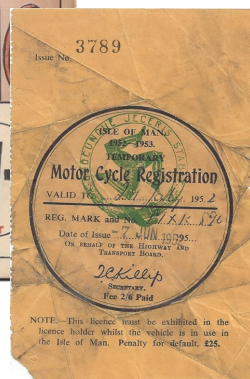 Issue No. 3789
QUOCUNQUE JECERIS STABIT
ISLE OF MAN.
1952-1953.
TEMPORARY
Motor Cycle Registration
VALID TO 195 2
REG. MARK and No.
Date of Issue -7 JUN 195
ON BEHALF OF THE HIGHWAY AND
TRANSPORT BOARD.
SECRETARY.
Fee 2/6 Paid
NOTE.—This licence must be exhibited in the
licence holder whilst the vehicle is in use in
the Isle of Man. Penalty for default, £25.